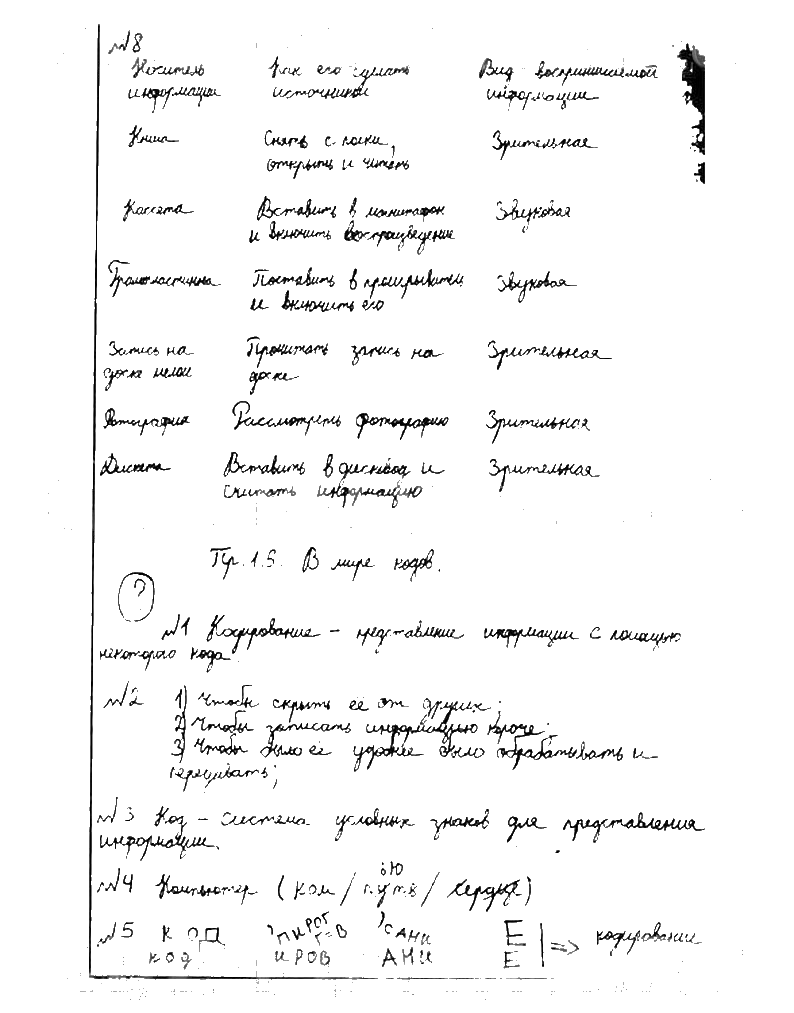 №8
Носитель Как его сделать Вид воспринимаемой
информации источником информации
Книга Снять с полки, Зрительная
открыть и читать
Кассета Вставить в магнитафон Звуковая
и включить воспроизведение
Грампластинка Поставить в проигрыватель Звуковая
и включить его
Запись на Прочитать запись на Зрительная
доске мелом доске
Фотография Рассмотреть фотографию Зрительная
Дискета Вставить в дисковод и Зрительная
считать информацию
Пр. 1.5. В мире кодов.
?
№1 Кодирование – представление информации с помощью
некоторого кода.
№2 1) Чтобы скрыть её от других;
2) Чтобы записать информацию короче;
3) Чтобы было её удобнее было обрабатывать и
передавать;
№3 Код – система условных знаков для представления
информации.
ью
№4 Компьютер (ком / путь / сердце)
№5 КОД 'ПИРОГ Г=В 'САНИ Е => кодирование
КОД ИРОВ АНИ Е